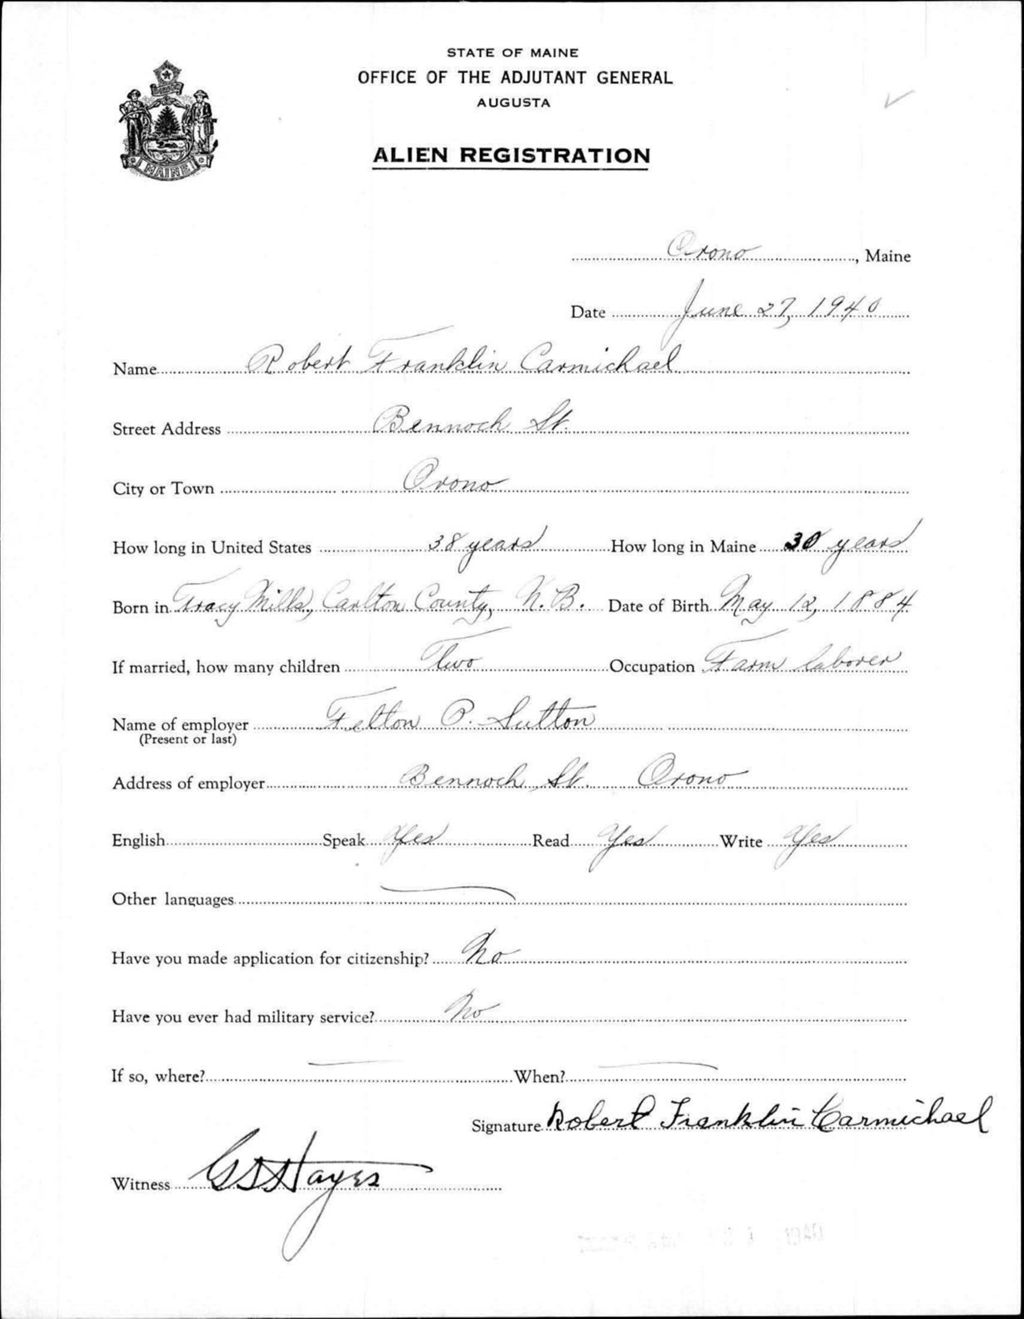 STATE OF MAINE
OFFICE OF THE ADJUTANT GENERAL
AUGUSTA
ALIEN REGISTRATION
MAINE
Orono, Maine
Date June 27, 1940
Name Robert Franklin Carmichael
Street Address Bennoch St.
City or Town Orono
How long in United States 38 years How long in Maine 30 years
Born in Tracy Mills, Carlton County, N.B. Date of Birth May 12, 1884
If married, how many children Two Occupation Farm laborer
Name of employer Felton P. Sutton
(Present or last)
Address of employer Bennoch St. Orono
English Speak Yes Read Yes Write Yes
Other languages
Have you made application for citizenship? No
Have you ever had military service? No
If so, where? When?
Signature Robert Franklin Carmichael
Witness Hayes